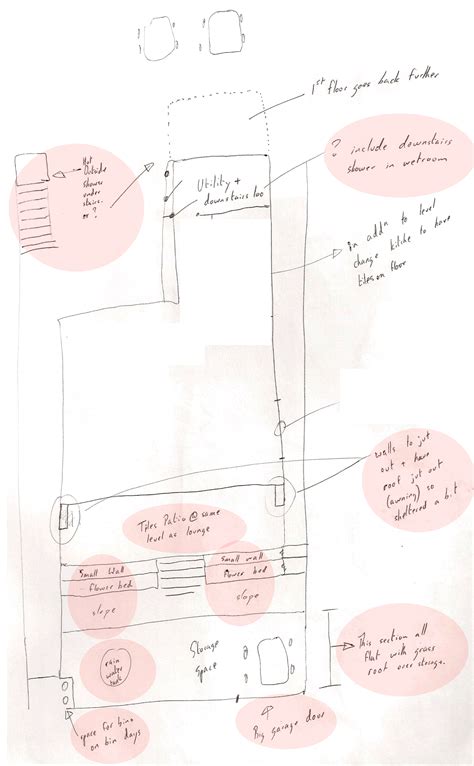 1st floor goes back further
Hot
Outside
shower
under
stairs.
or ?
? include downstairs
shower in wetroom
Utility +
downstairs loo
In addn to level
change kitche to have
tiles on floor
walls to jut
out + have
roof jut out
(awning) so
sheltered a bit
Tiles Patio @ same
level as lounge
Small Wall
flower bed
slope
Small wall
flower bed
slope
rain
water
Storage
Space
This section all
flat with grass
roof over storage.
space for bins
on bin days
Big garage door